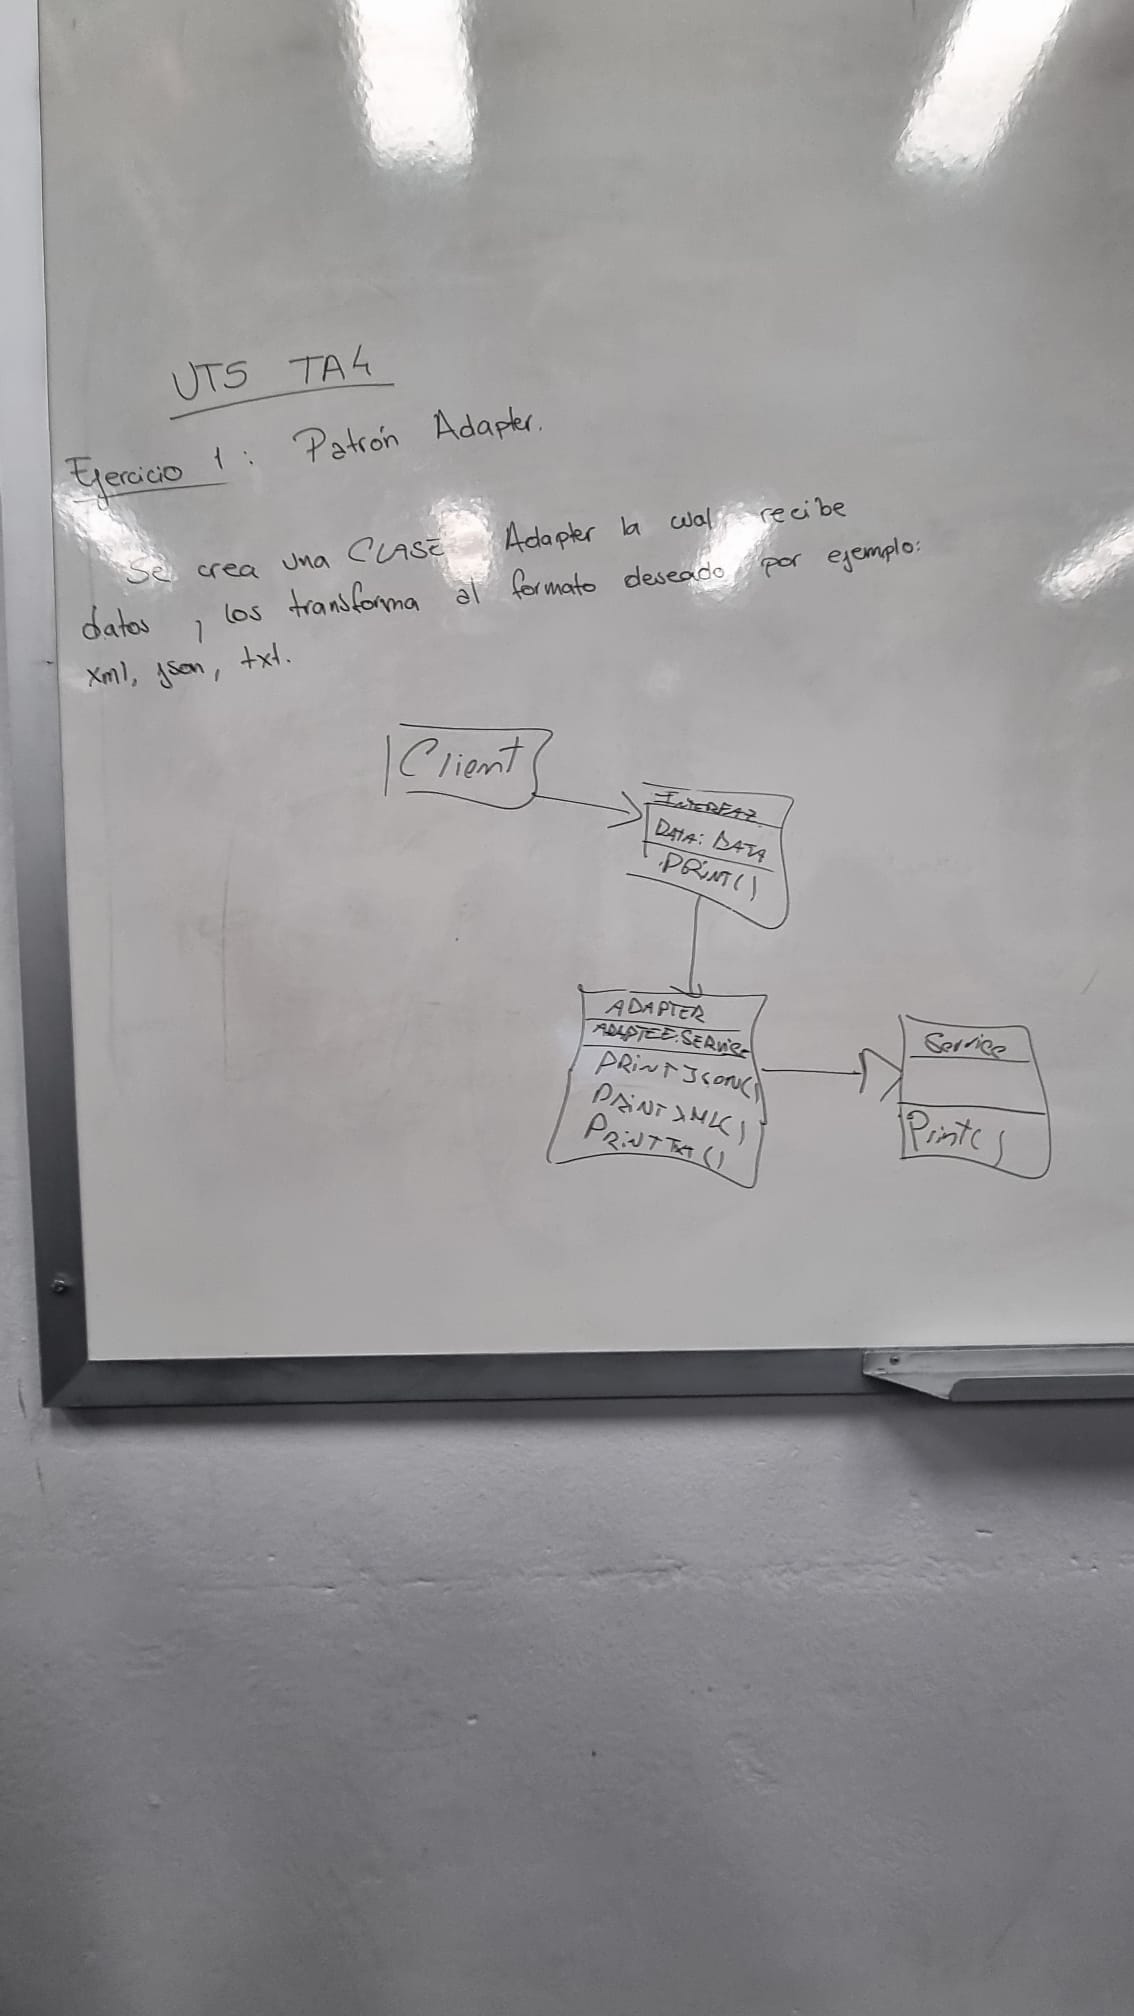 UT5 TA4
Ejercicio 1: Patrón Adapter.
Se crea una CLASE Adapter la cual recibe
datos, los transforma al formato deseado por ejemplo:
xml, json, txt.
Client
INTERFAZ
DATA: DATA
.PRINT()
ADAPTER
ADAPTEE:SERVICE
PRINTJSON()
PRINTXML()
PRINTTXT()
Service
Print()